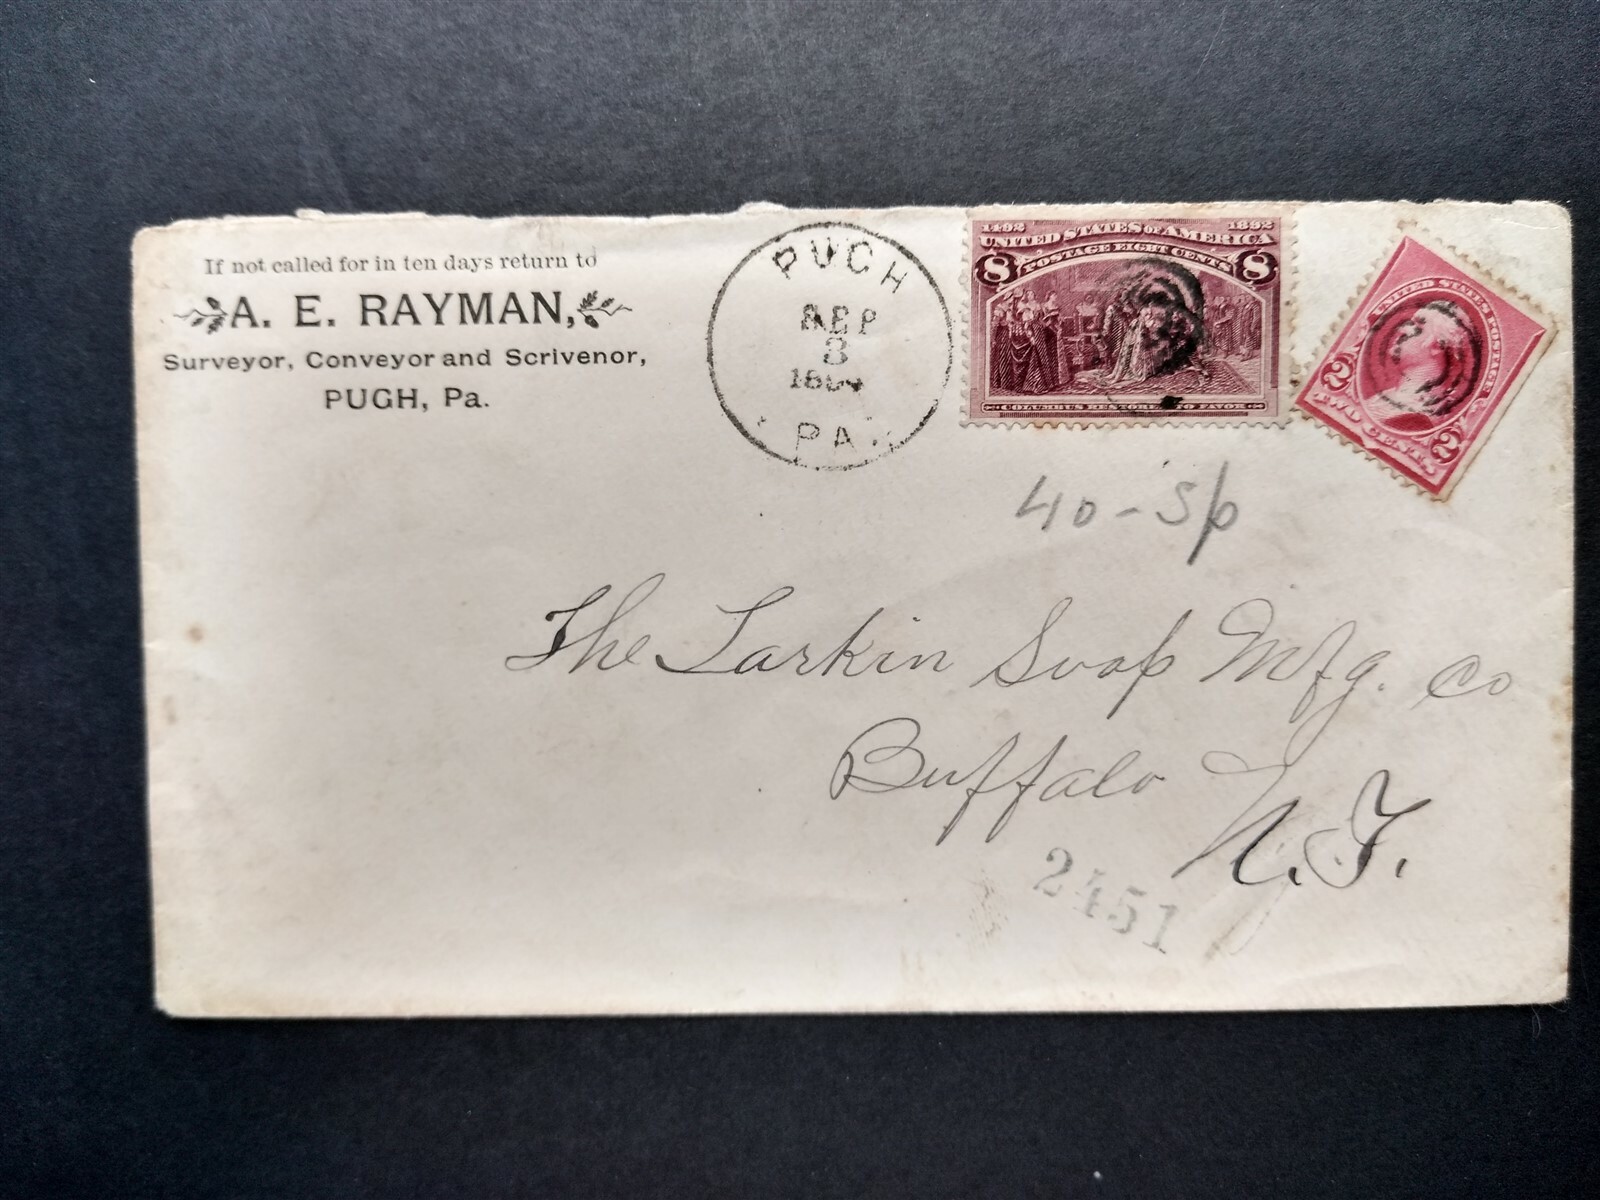 If not called for in ten days return to
A. E. RAYMAN,
Surveyor, Conveyor and Scrivenor,
PUGH, Pa.
PUGH
SEP
3
PA.
1492 1892
UNITED STATES OF AMERICA
POSTAGE EIGHT CENTS
8 8
COLUMBUS RESTORED TO FAVOR
UNITED STATES POSTAGE
2 2
TWO CENTS
40-Sp
The Larkin Soap Mfg. Co
Buffalo
N.Y.
2451